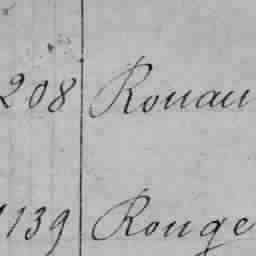 208 Rouau
1139 Rouge